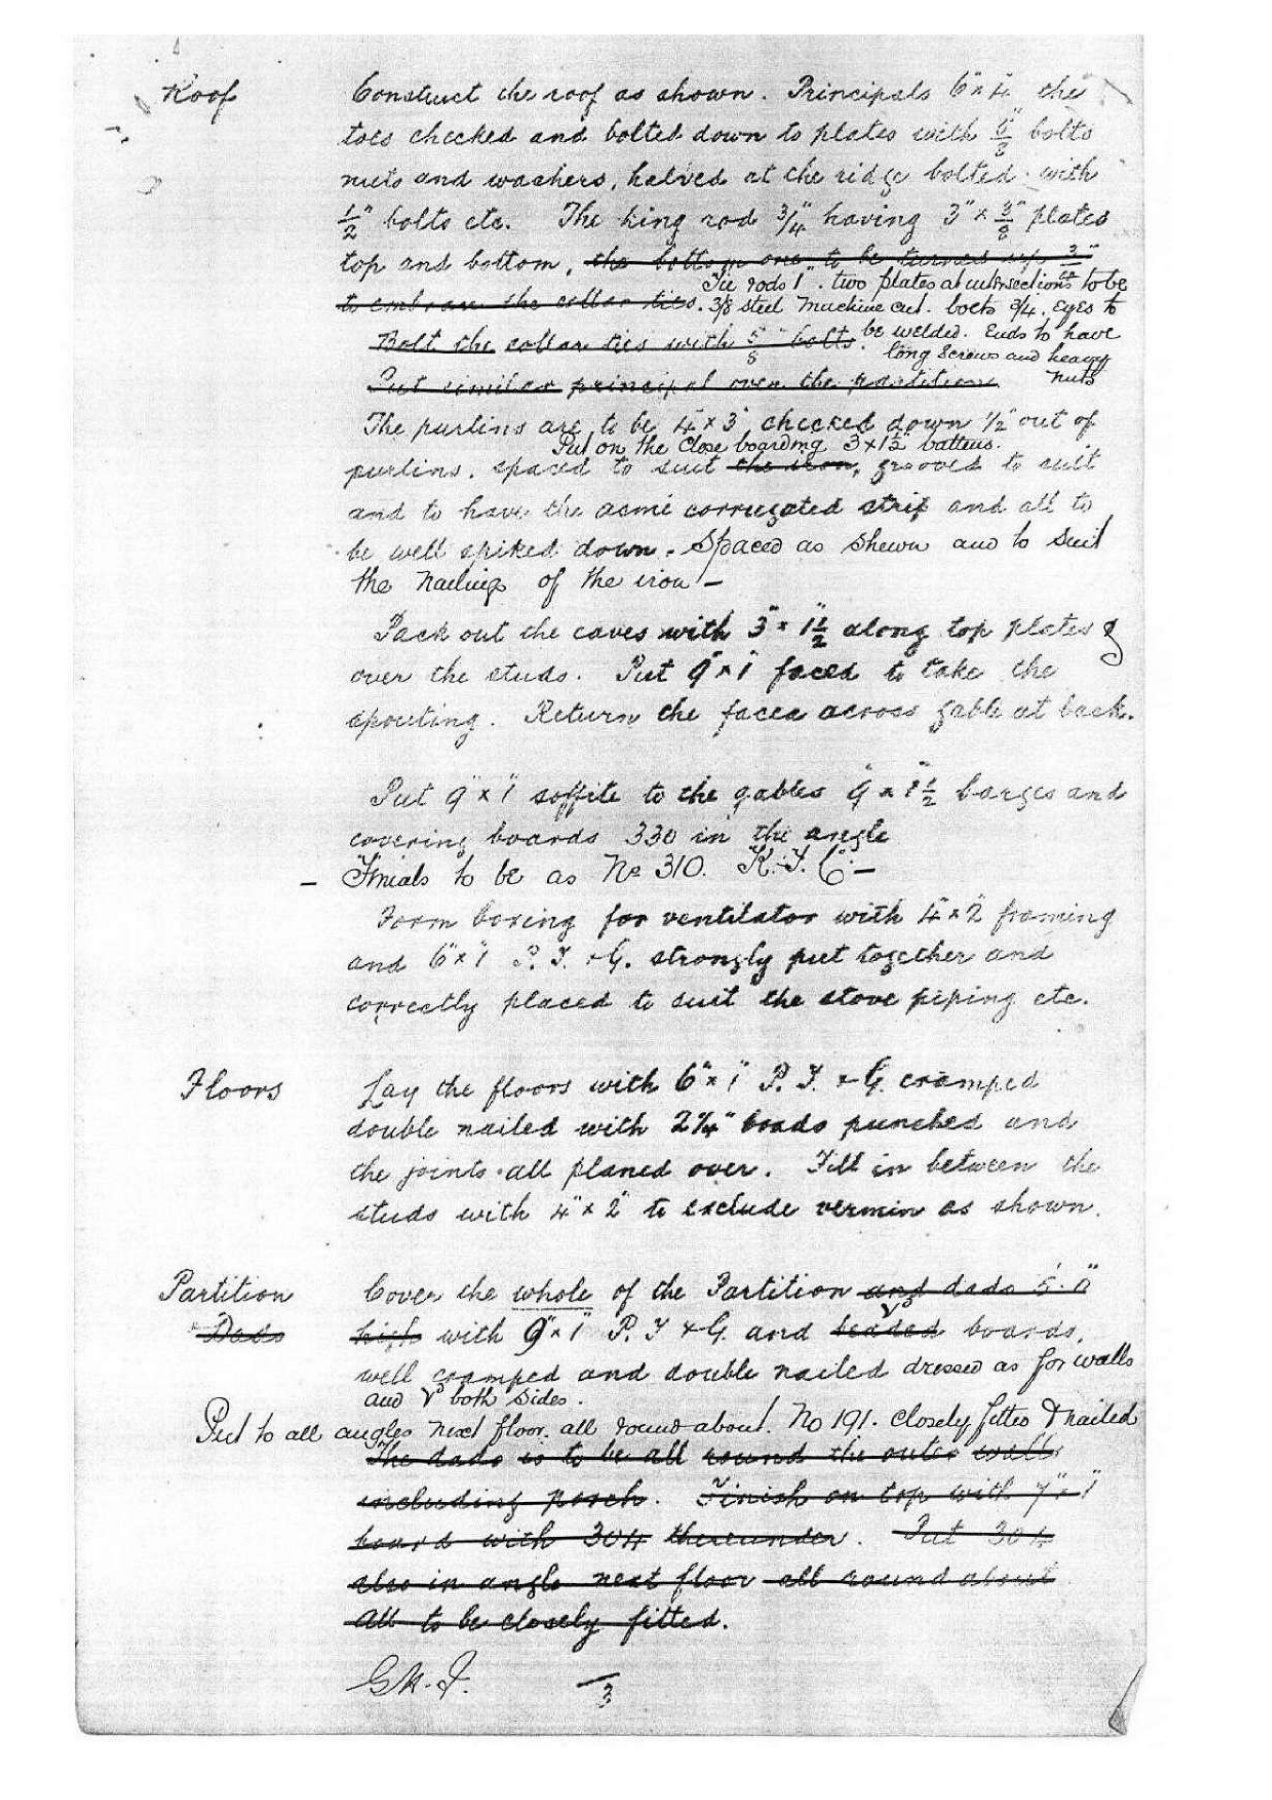 Roof Construct the roof as shown. Principals 6" x 4" the
toes checked and bolted down to plates with 5/8" bolts
nuts and washers, halved at the ridge bolted with
1/2" bolts etc. The king rod 3/4" having 3" x 3/8" plates
top and bottom, the bottom one to be turned up
Tie rods 1". two plates at intersections to be
to embrace the collar ties. 3/8 steel machine cut. bolts 3/4. Eyes to
Bolt the collar ties with 5/8" bolts. be welded. Ends to have
long screws and heavy
Put similar principal over the partition nuts
The purlins are to be 4" x 3" checked down 1/2" out of
Put on the close boarding 3 x 1 1/2" battens.
purlins. spaced to suit the iron, grooved to suit
and to have the acme corrugated strip and all to
be well spiked down. Spaced as shewn and to suit
the nailings of the iron –
Pack out the eaves with 3" x 1 1/2" along top plates &
over the studs. Put 9" x 1" facea to take the
spouting. Return the facea across gable at back.
Put 9" x 1" soffite to the gables 9" x 1 1/2" barges and
covering boards 330 in the angle
– Finials to be as No 310. K.T.C. –
Form boxing for ventilator with 4" x 2" framing
and 6" x 1" P. T. & G. strongly put together and
correctly placed to suit the stove piping etc.
Floors Lay the floors with 6" x 1" P. T. & G. cramped
double nailed with 2 1/4" brads punched and
the joints all planed over. Fill in between the
studs with 4" x 2" to exclude vermin as shown.
Partition Cover the whole of the Partition and dado 5'. 0"
Dado high with 9" x 1" P. T & G. and beaded V'd boards,
well cramped and double nailed dressed as for walls
and V'd both sides.
Put to all angles next floor. all round about. No 191. closely fitted & nailed
The dado is to be all round the outer walls
including porch. Finish on top with 7" x 1"
board with 304 thereunder. Put 304
also in angle next floor all round about
all to be closely fitted.
3